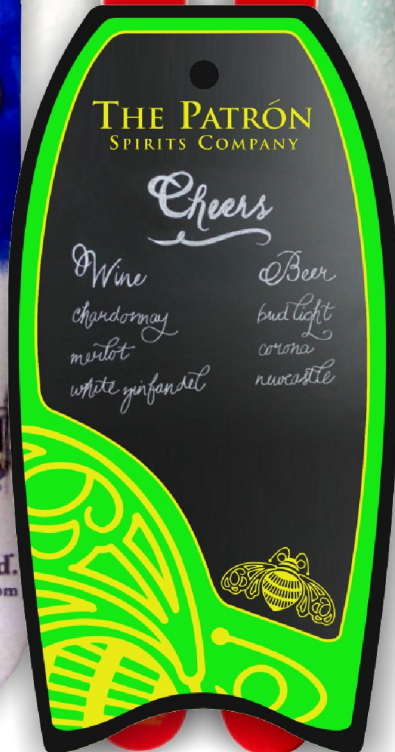 THE PATRÓN
SPIRITS COMPANY
Cheers
Wine
chardonnay
merlot
white zinfandel
Beer
bud light
corona
newcastle
d.
om